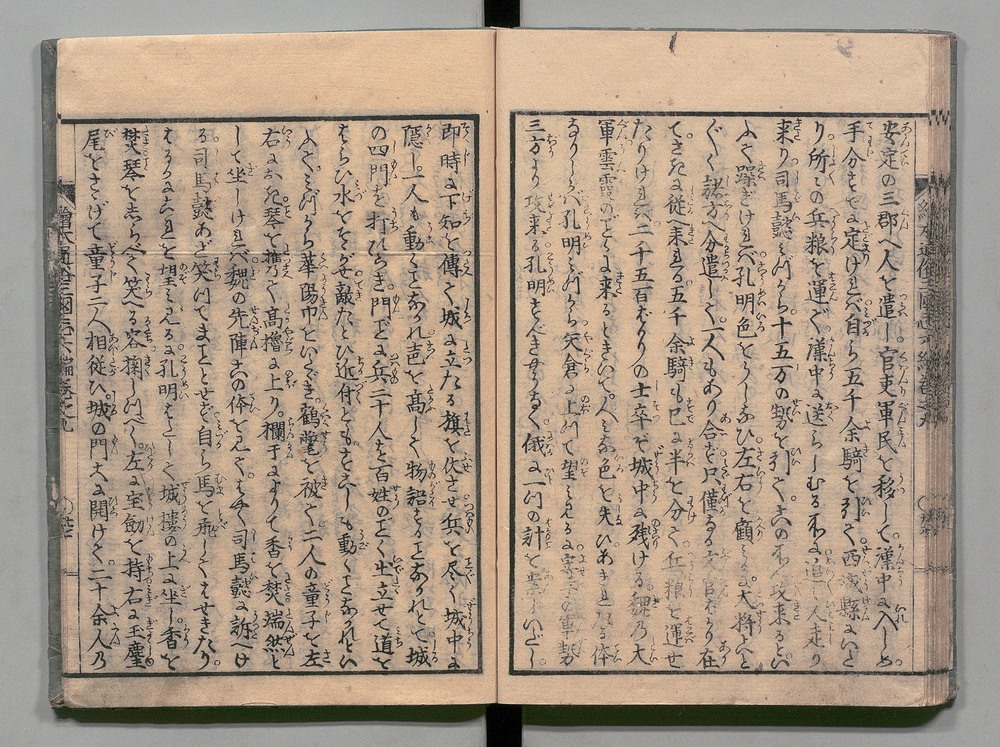 安定の三郡へ人を遣し。官吏軍民を移して漢中に入しめ
手分すでに定けれバ自ら五千余騎を引て。西城縣にいた
り。所々の兵粮を運で。漢中に送らしむる所に。追々人走り
来り。司馬懿ミづから十五万の勢を引て。この所へ攻来るとい
ふて躁ぎけれバ。孔明色をうしなひ左右を顧ミるに大将たと
ぐく諸方へ分遣して一人もあり合ず。只僅なる文官ばかり在
てさきに従へ来れる五千余騎も已に半を分て兵粮を運せ
たりけれバ。二千五百ばかりの士卒ぞ城中に残ける。魏の大
軍雲霞のごとく来るときいて。人ミな色を失ひあきれたる体
なりしバ孔明ミづから矢倉に上りて望ミ見るに。寄手の軍勢
三方より攻来る。孔明すこしもさわがず。俄に一つの計を案じいだし。
即時に下知を傳へて城に立たる旗を伏させ兵を尽く城中に
隠し。一人も動くことなかれ声を高して物語することなかれとて。城
の四門を打ひらき。門ごとに兵二十人を百姓のごとく出立せて道を
はらひ水をそゝがせ敵たとひ近付ともすこしも動くことなかれとい
ふて。ミづから華陽巾をいたゞき。鶴氅を被て二人の童子を左
右に具し琴を携て高櫓に上り。欄干によりて香を焚端然と
して坐しけれバ。魏の先陣この体を見て。はやく司馬懿に訴へけ
る。司馬懿あざ笑つてまことゝせず自ら馬を飛してはせきたり。
はるかにこれを望ミ見るに孔明はたして城樓の上に坐し。香を
焚琴をしらべて笑へる容掬しつべく。左に宝劔を持右に玉塵
尾をさゝげて童子二人相従ひ。城の門大に開けて。二十余人の
繪本通俗三國志六編巻之九
繪本通俗三國志六編巻之九